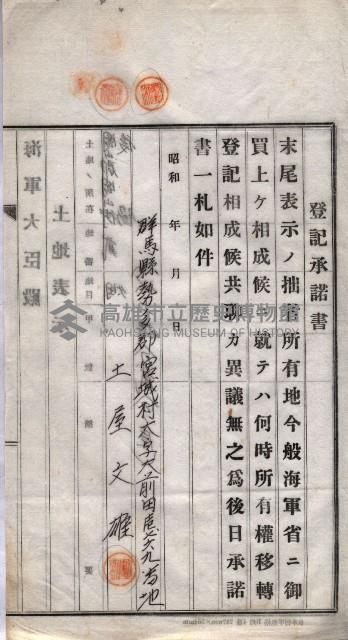 登記承諾書
末尾表示ノ拙者所有地今般海軍省ニ御
買上ケ相成候ニ就テハ何時所有權移轉
登記相成候共聊カ異議無之爲後日承諾
書一札如件
昭和　年　月　日
群馬縣勢多郡宮城村大字大前田
土屋文雄
土地ノ所在
土地表
海軍大臣殿
高雄市立歷史博物館
KAOHSIUNG MUSEUM OF HISTORY